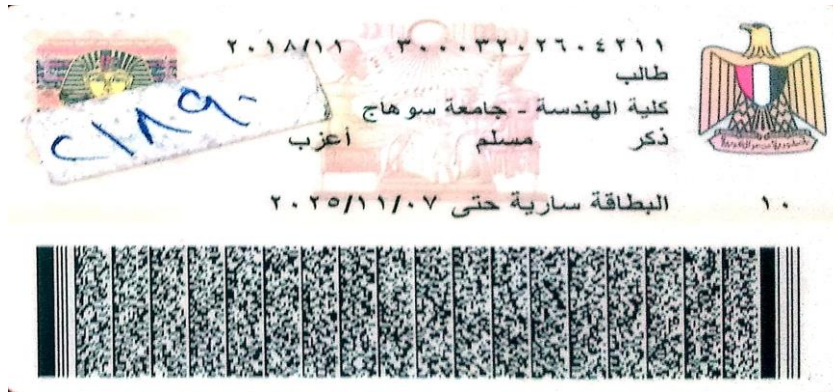 ٣٠٠٠٣٢٠٢٦٠٤٢١١ ٢٠١٨/١١
طالب
كلية الهندسة - جامعة سوهاج
ذكر مسلم أعزب
٢١٨٩٠
١٠ البطاقة سارية حتى ٢٠٢٥/١١/٠٧